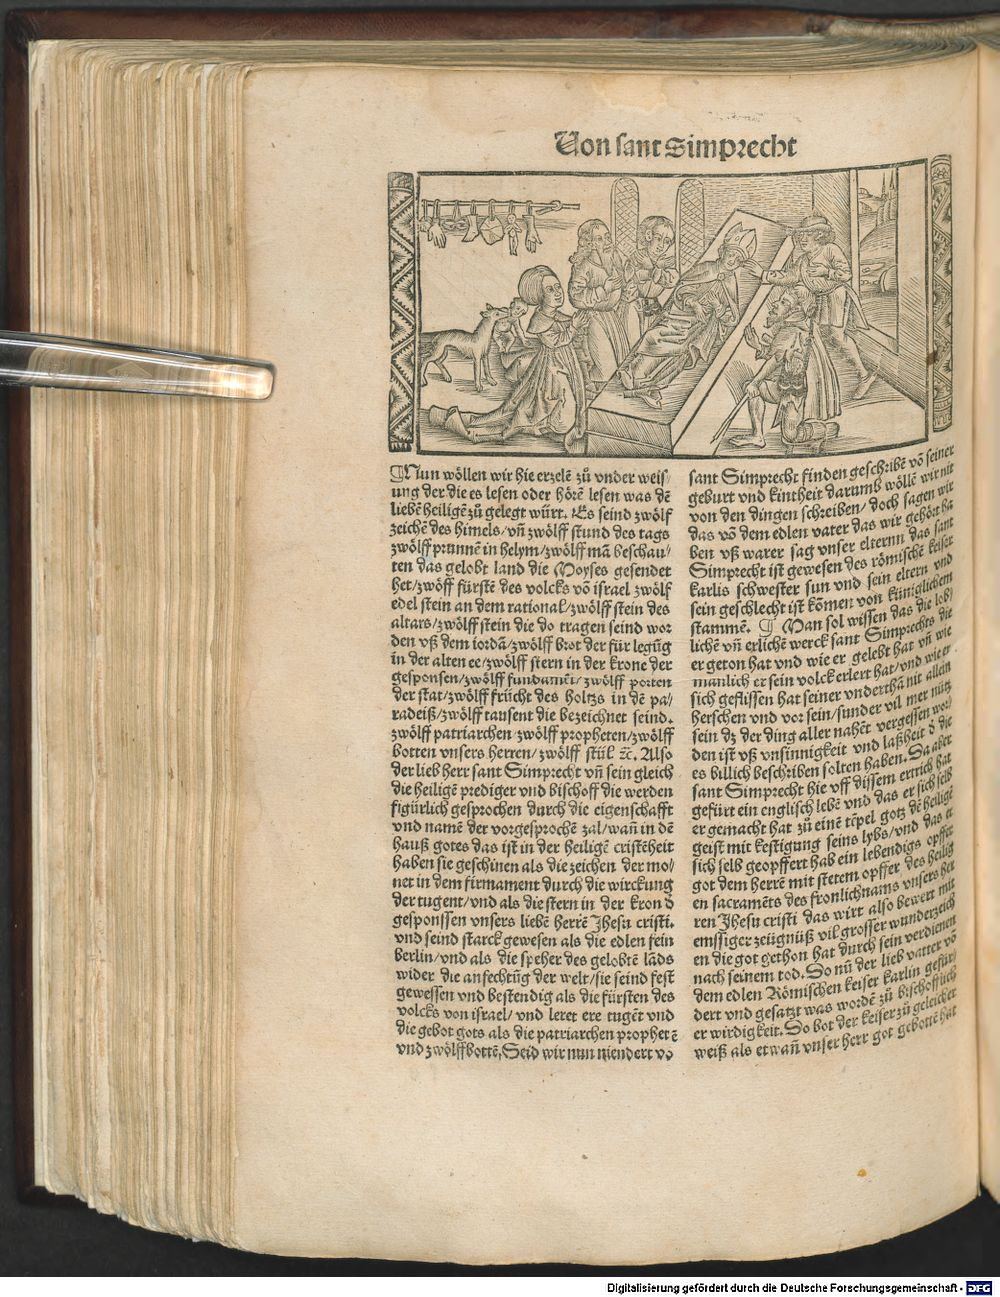 Von sant Simprecht
¶Nun wöllen wir hie erzelē zů vnder weis/
ung der die es lesen oder hörē lesen was dē
liebē heiligē zů gelegt würt. Es seind zwölf
zeichē des himels/vñ zwölff stund des tags
zwölff prunnē in helym/zwölff mā beschau/
ten das gelobt land die Moyses gesendet
het/zwöff fürstē des volcks vō israel zwölf
edel stein an dem rational/zwölff stein des
altars/zwölff stein die do tragen seind wor
den vß dem iordā/zwölff brot der für legūg
in der alten ee/zwölff stern in der krone der
gesponsen/zwölff fundamēt/zwölff porten
der stat/zwölff frücht des holtzs in dē pa/
radeiß/zwölff tausent die bezeichnet seind.
zwölff patriarchen/zwölff propheten/zwölff
botten vnsers herren/zwölff stül ⁊c. Also
der lieb herr sant Simprecht vñ sein gleich
die heiligē prediger vnd bischoff die werden
figürlich gesprochen durch die eigenschafft
vnd namē der vorgesprochē zal/wañ in dē
hauß gotes das ist in der heiligē cristēheit
haben sie geschinen als die zeichen der mo/
net in dem firmament durch die wirckung
der tugent/vnd als die stern in der kron d̕
gesponssen vnsers liebē herrē Jhesu cristi.
vnd seind starck gewesen als die edlen fein
berlin/vnd als die speher des gelobtē lāds
wider die anfechtūg der welt/sie seind fest
gewessen vnd bestendig als die fürsten des
volcks von israel/vnd leret ere tugēt vnd
die gebot gots als die patriarchen prophetē
vnd zwölffbottē, Seid wir nun niendert vō
sant Simprecht finden geschribē vō seiner
geburt vnd kintheit darumb wöllē wir nit
von den dingen schreiben/doch sagen wir
das vō dem edlen vater das wir gehört ha
ben vß warer sag vnser elternn das sant
Simprecht ist gewesen des römischē keiser
karlis schwester sun vnd sein eltern vnd
sein geschlecht ist kōmen von küniglichem
stammē. ¶ Man sol wissen das die lob/
lichē vñ erlichē werck sant Simprechts die
er geton hat vnd wie er gelebt hat vñ wie
manlich er sein volck erlert hat/vnd wie er
sich geflissen hat seiner vnderthā nit allein
herschen vnd vor sein/sunder vil mer nütz
sein dz der ding aller nahēt vergessen wor/
den ist vß vnsinnigkeit vnd laßheit d̕ die
es billich beschriben solten haben. Da aber
sant Simprecht hie vff dissem ertrich hat
gefürt ein englisch lebē vnd das er sich selb
er gemacht hat zů einē tēpel gotz dē heiligē
geist mit kestigung seins lybs/vnd das er
sich selb geopffert hab ein lebendigs opffer
got dem herrē mit stetem opffer des heilig
en sacramēts des fronlichnams vnsers her
ren Jhesu cristi das wirt also bewert mit
emssiger zeügnüß vil grosser wunderzeich
en die got gethon hat durch sein verdienen
nach seinem tod. So nū der lieb vatter vō
dem edlen Römischen keiser karlin gefür/
dert vnd gesatzt was wordē zů bischofflich
er wirdigkeit. So bot der keiser zů geleicher
weiß als etwañ vnser herr got gebottē hat
Digitalisierung gefördert durch die Deutsche Forschungsgemeinschaft - DFG